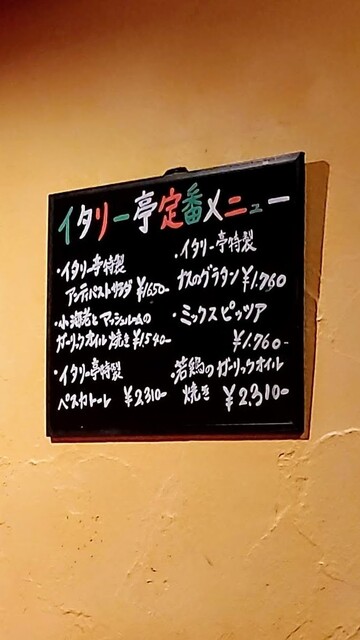 イタリー亭定番メニュー
・イタリー亭特製
アンティパストサラダ ¥1650-
・小海老とマッシュルームの
ガーリックオイル焼き ¥1,540-
・イタリー亭特製
ペスカトーレ ¥2,310-
・イタリー亭特製
ナスのグラタン ¥1,760
・ミックスピッツア
¥1,760-
・若鶏のガーリックオイル
焼き ¥2,310-